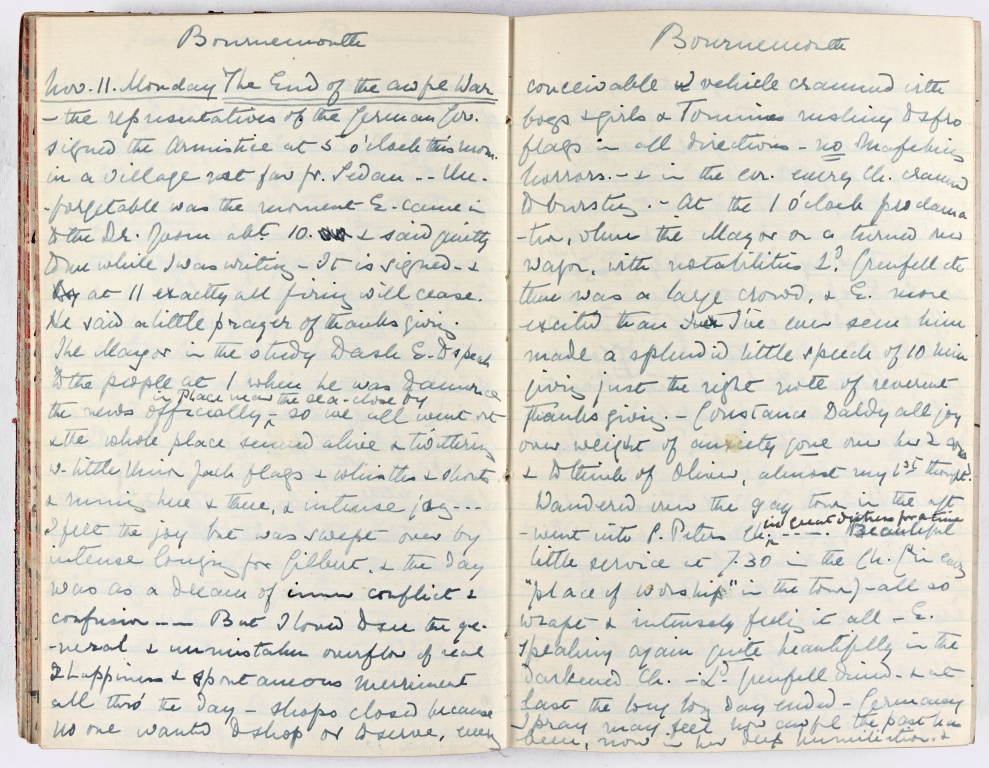 Bournemouth
Nov. 11. Monday The End of the awful War
- the representatives of the German Gov.
signed the Armistice at 5 o'clock this morn.
in a village not far fr. Sedan -- Un-
-forgetable was the moment E. came in
to the Dr. Room abt. 10. & said quietly
to me while I was writing - It is signed - &
at 11 exactly all firing will cease.
He said a little prayer of thanksgiving.
The Mayor in the study to ask E. to speak
to the people at 1 when he was to announce
in place near the sea - close by
the news officially - so we all went out
& the whole place seemed alive & twittering
w. little Union Jack flags & whistles & shouts
& running here & there, & intense joy ---
I felt the joy but was swept over by
intense longing for Gilbert, & the day
was as a dream of inner conflict &
confusion -- But I loved to see the ge-
-neral & unmistaken overflow of real
happiness & spontaneous merriment
all thro' the day - shops closed because
no one wanted to shop or to serve, every
Bournemouth
conceivable vehicle crammed with
boys & girls & Tommies rushing to & fro
flags in all directions - no Mafeking
horrors. - & in the ev. every Ch. crammed
to bursting. - At the 1 o'clock proclama
-tion, when the Mayor on a turned
, with notabilities Ld. Grenfell etc
there was a large crowd, & E. more
excited than I've ever seen him
made a splendid little speech of 10 min
giving just the right note of reverent
thanksgiving. - Constance Daldy all joy
over weight of anxiety gone over her 2
& to think of Oliver, almost my 1st thought.
Wandered over the gay town in the aft
in great distress for a time
- went into S. Peters Ch. ---- . Beautiful
little service at 7.30 in the Ch. (in every
"place of worship" in the town) - all so
wrapt & intensely feeling it all - E.
speaking again quite beautifully in the
darkened Ch. - Ld. Grenfell dined - & at
last the long long day ended - Germany
I pray may feel how awful the past has
been, now in her deep humiliation. &